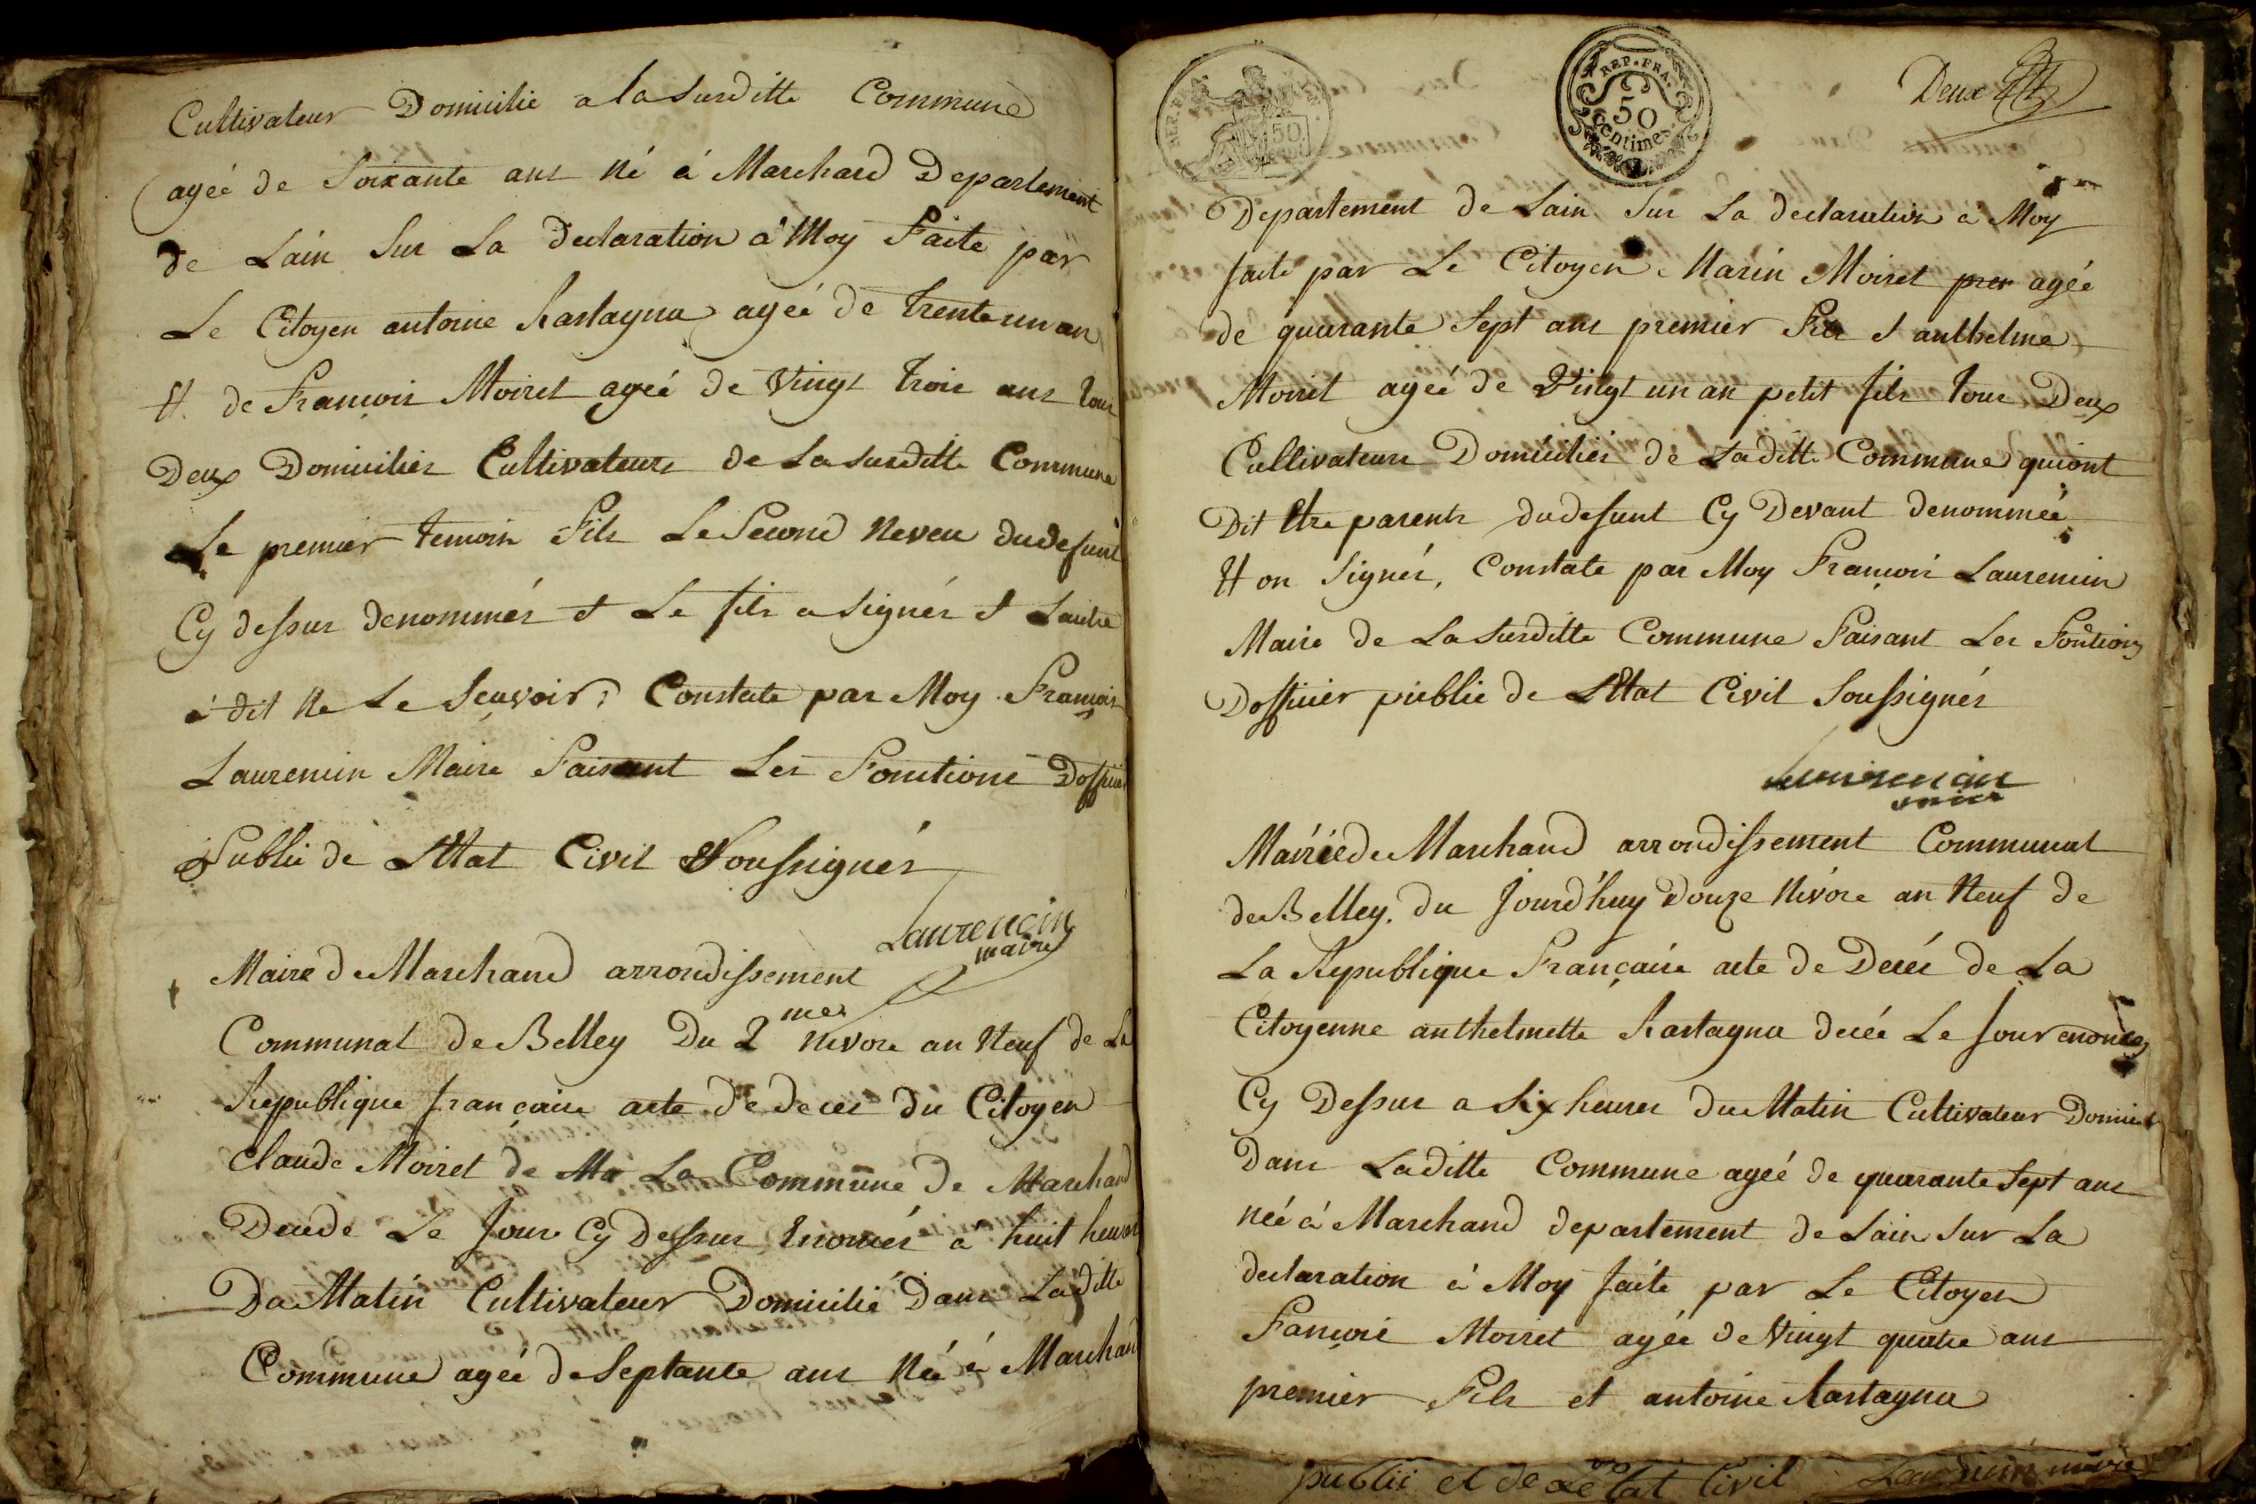 Cultivateur Domicilie a la susditte Commune
ageé de Soixante ans né á Marchand Departement
de Lain Sur La declaration á Moy Faite par
Le Citoyen antoine Rastagna ageé de trente un an
Et de François Moiret ageé de Vingt trois ans tous
Deux Domiciliés Cultivateurs de La susditte Commune
Le premier temoin Fils Le Second Neveu du defunt
Cy dessus denommés et Le fils a signés et Lautre
á dit Ne Le Scavoir, Constate par Moy François
Laurencin Maire Faisant Les Fonctions Dofficier
Public de LEtat Civil Soussignés
Laurencin
maire
Maire de Marchand arrondissement
Communal de Belley Du 2 mes nivose an Neuf de La
Republique française acte de deces du Citoyen
Claude Moiret de Ma La Commune De Marchand
Decede Le Jour Cy Dessus Enoncés á huit heures
Da Matin Cultivateur Domicilié Dans Laditte
Commune ageé de Septante ans Né á Marchand
REP. FRA.
50
REP. FRA.
50
Centimes
Deux
Departement de Lain Sur La declaration a Moy
faite par Le Citoyen Marin Moiret agée
de quarante Sept ans premier Fils et anthelme
Moiret ageé de Vingt un an petit fils tous Deux
Cultivateurs Domiciliés de Laditte Commune qui ont
Dit Etre parents du defunt Cy Devant denommée
Et on Signés, Constate par Moy François Laurencin
Maire de La susditte Commune Faisant Les Fontions
Dofficier public de LEtat Civil Soussignés
Laurencin
maire
Mairie de Marchand arrondissement Communal
de Belley. du Jourd'huy Douze Nivose an Neuf de
La Republique Française acte de Decés de La
Citoyenne anthelmette Rastagna decée Le Jour enoncés
Cy Dessus a Six heures du Matin Cultivateur Domicil
Dans Laditte Commune ageé de quarante Sept ans
neé á Marchand departement de Lain Sur La
declaration á Moy faite par Le Citoyen
Fançois Moiret agée de Vingt quatre ans
premier Fils et antoine Rastagna
public et de Le tat Civil Laurencin maire